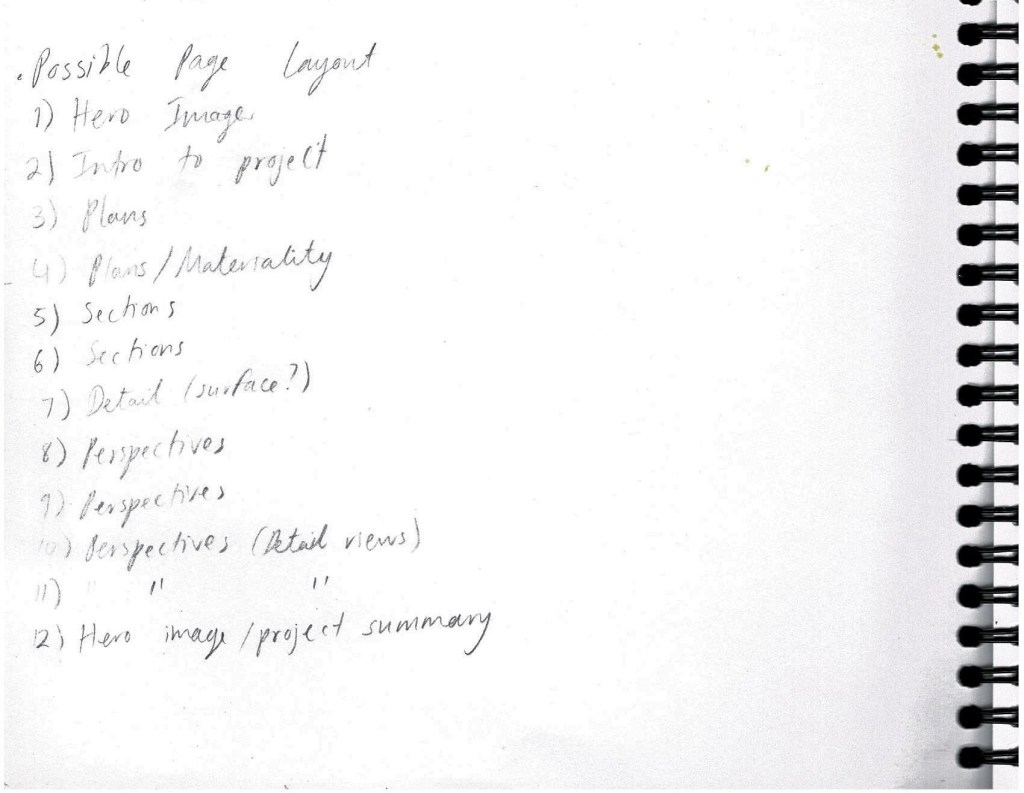 . Possible Page Layout
1) Hero Image
2) Intro to project
3) Plans
4) Plans / Materiality
5) Sections
6) Sections
7) Detail (surface?)
8) Perspectives
9) Perspectives
10) Perspectives (Detail views)
11) " " "
12) Hero image / project summary